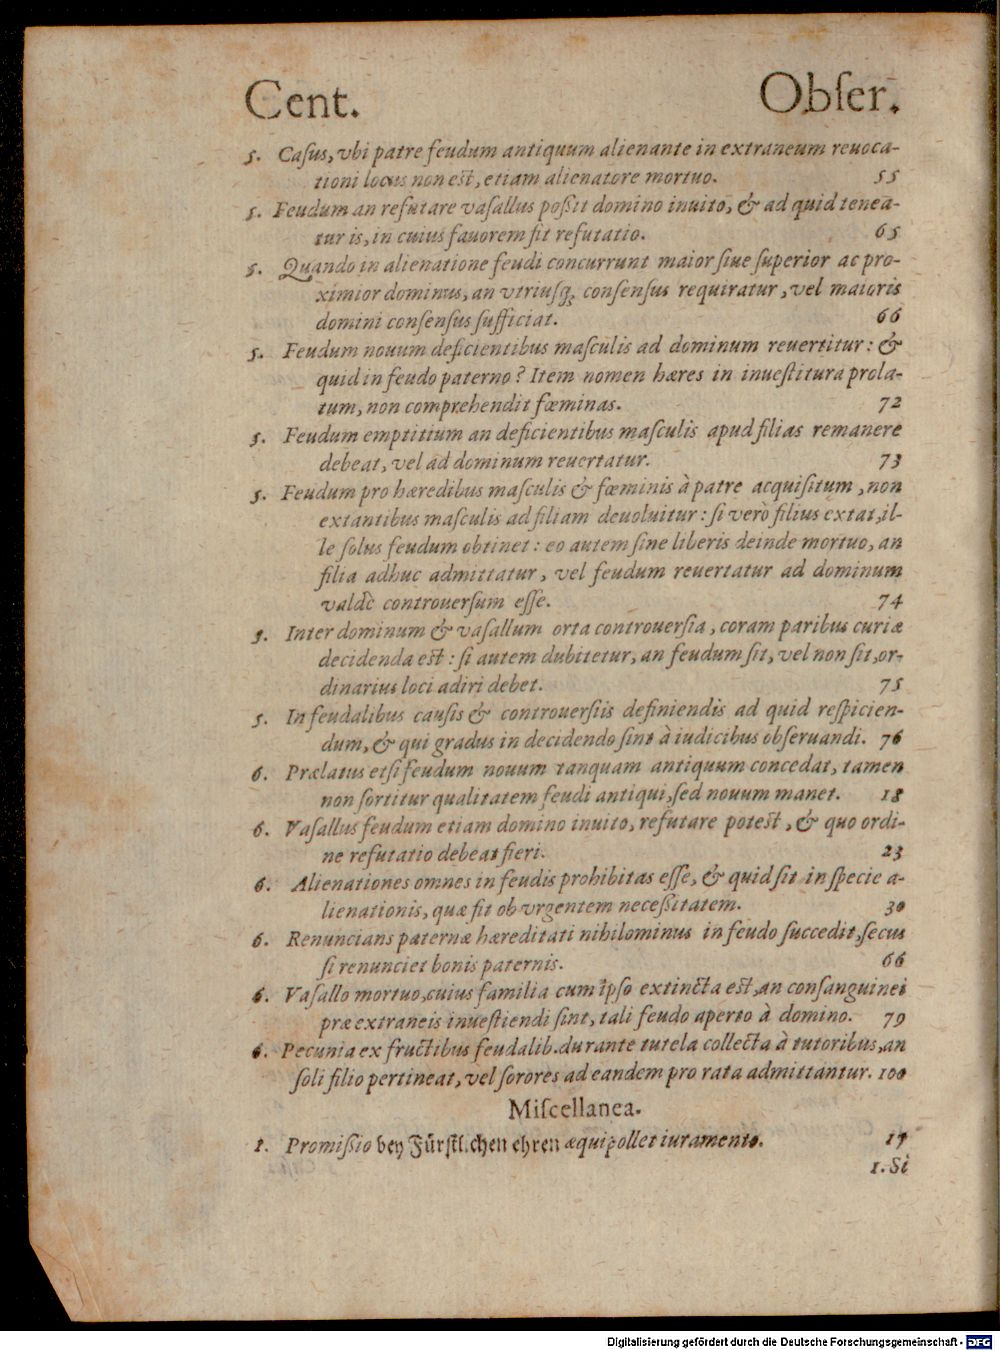 Cent. Obſer.
5. Caſus, vbi patre feudum antiquum alienante in extraneum reuoca-
tioni locus non est, etiam alienatore mortuo. 55
5. Feudum an refutare vaſallus poßit domino inuito, & ad quid tenea-
tur is, in cuius fauorem fit refutatio. 65
5. Quando in alienatione feudi concurrunt maior ſiue ſuperior ac pro-
ximior dominus, an vtriuſq; conſenſus requiratur, vel maioris
domini conſenſus ſufficiat. 66
5. Feudum nouum deficientibus maſculis ad dominum reuertitur: &
quid in feudo paterno? Item nomen hæres in inueſtitura prola-
tum, non comprehendit fœminas. 72
5. Feudum emptitium an deficientibus maſculis apud filias remanere
debeat, vel ad dominum reuertatur. 73
5. Feudum pro hæredibus maſculis & fœminis à patre acquiſitum, non
extantibus maſculis ad filiam deuoluitur: ſi verò filius extat, il-
le ſolus feudum obtinet: eo autem ſine liberis deinde mortuo, an
filia adhuc admittatur, vel feudum reuertatur ad dominum
valdè controuerſum eſſe. 74
5. Inter dominum & vaſallum orta controuerſia, coram paribus curiæ
decidenda est: ſi autem dubitetur, an feudum ſit, vel non ſit, or-
dinarius loci adiri debet. 75
5. In feudalibus cauſis & controuerſiis definiendis ad quid reſpicien-
dum, & qui gradus in decidendo ſint à iudicibus obſeruandi. 76
6. Prælatus etſi feudum nouum tanquam antiquum concedat, tamen
non ſortitur qualitatem feudi antiqui, ſed nouum manet. 18
6. Vaſallus feudum etiam domino inuito, refutare potest, & quo ordi-
ne refutatio debeat fieri. 23
6. Alienationes omnes in feudis prohibitas eſſe, & quid ſit in ſpecie a-
lienationis, quæ fit ob vrgentem neceßitatem. 30
6. Renuncians paternæ hæreditati nihilominus in feudo ſuccedit, ſecus
ſi renunciet bonis paternis. 66
6. Vaſallo mortuo, cuius familia cum ipſo extincta est, an conſanguinei
præ extraneis inueſtiendi ſint, tali feudo aperto à domino. 79
6. Pecunia ex fructibus feudalib. durante tutela collecta à tutoribus, an
ſoli filio pertineat, vel ſorores ad eandem pro rata admittantur. 100
Miſcellanea.
1. Promißio bey Fürſtlichen ehren æquipollet iuramento. 17
1. Si
Digitalisierung gefördert durch die Deutsche Forschungsgemeinschaft - DFG